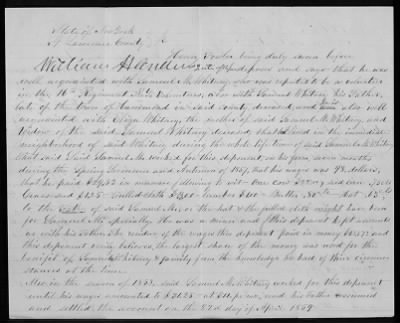 State of New York
St Lawrence County
Henry being duly sworn before
William H Sanders deposes and says that he was
well acquainted with Samuel M. Whitney, who was reputed to be a volunteer
in the 16th Regiment N.Y. Volunteers, also with Samuel Whitney his Father,
late of the town of in said county deceased, and also well
acquainted with Eliza Whitney, the mother of said Samuel M. Whitney, and
Widow of the said Samuel Whitney deceased, that lived in the immediate
neighborhood of said Whitney during the whole life time of said Samuel M. Whitney
that said Samuel M. worked for this deponent, on his farm, seven months
during the Spring Summer and Autumn of 1857, his wages was 98 dollars,
that he paid in manner following to wit - One cow
to the of said Samuel M., or the hat & the fulled cloth might have been
for Samuel M. specially. He was a minor and this deponent kept accounts
as with his Father. The residue of the wages this deponent paid in money
this deponent verily believes, the largest share of the money was used for the
benefit of Samuel Whitney & family, from the knowledge he had of their circum
stances at the time.
Also in the season of 1858, said Samuel M. Whitney worked for this deponent
until his wages amounted to and his Father received
and settled the account on the 22d day of April 1859